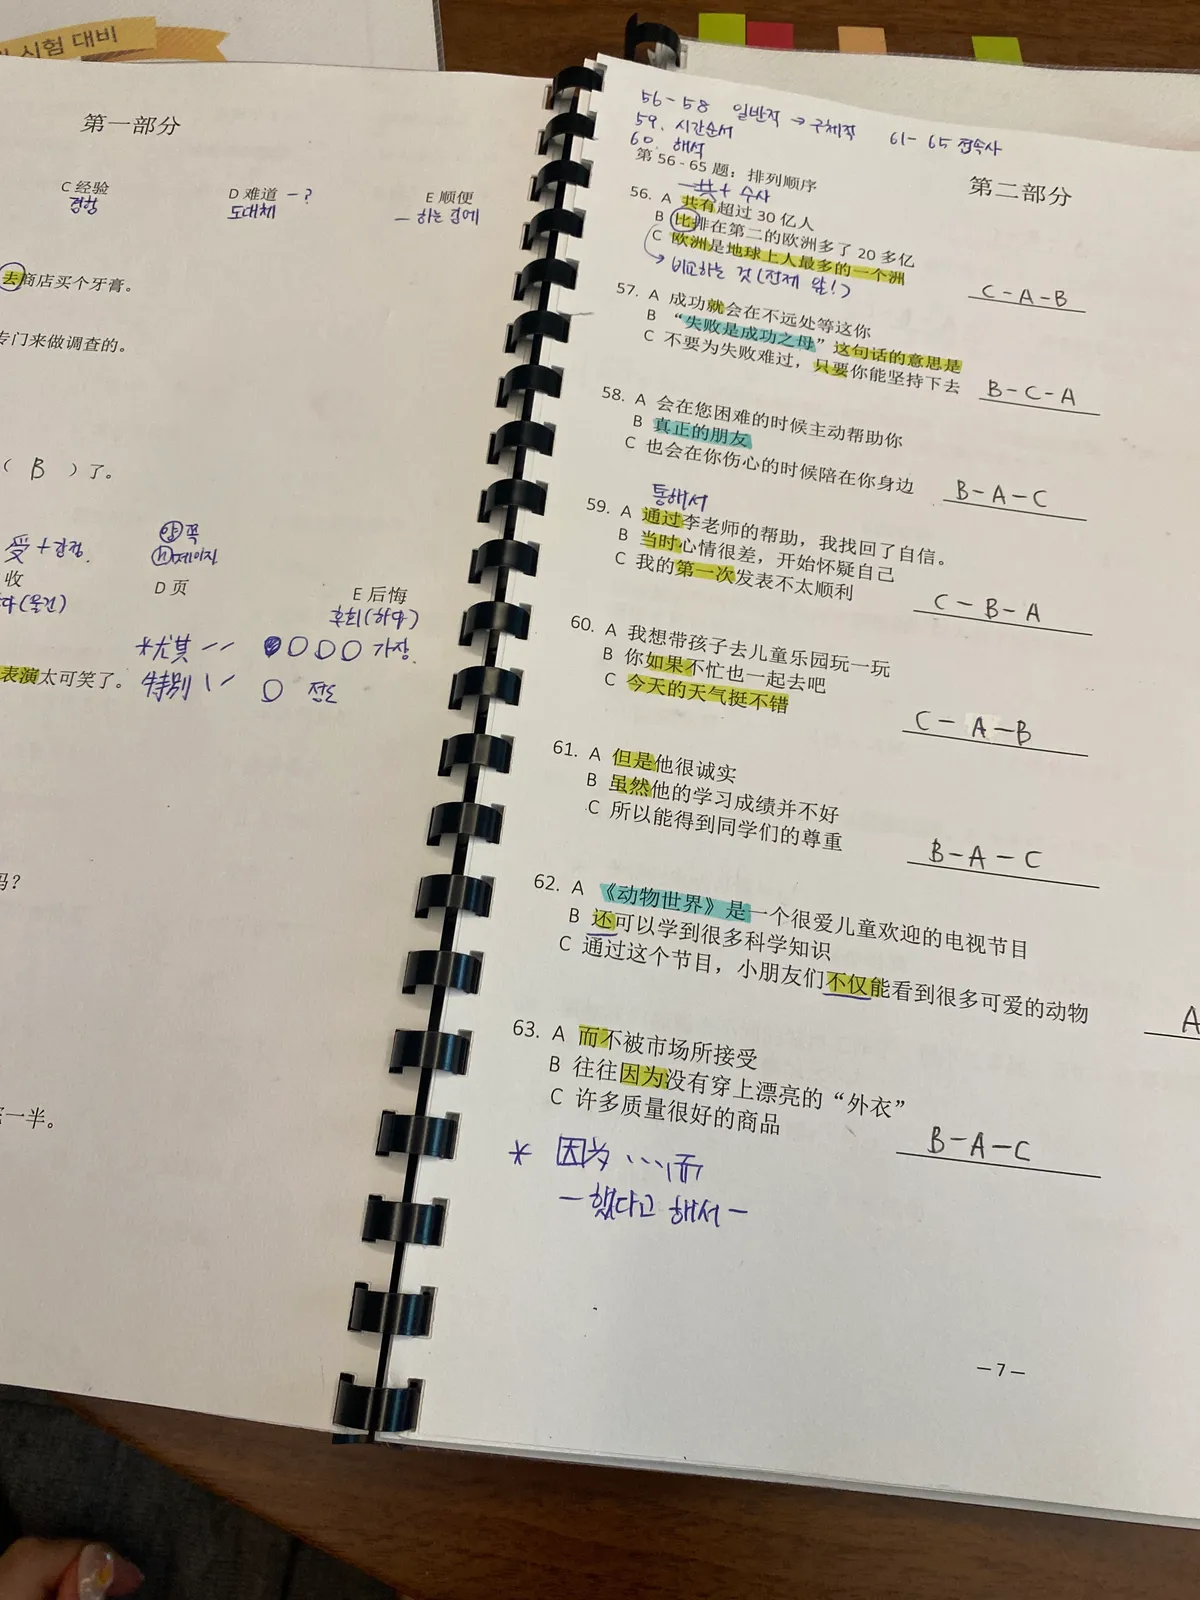 시험 대비
第一部分
C 经验
D 难道 -?
E 顺便
경험
도대체
- 하는 김에
去商店买个牙膏。
专门来做调查的。
( B )了。
受+감정.
收
D 页
(물건)
쪽
페이지
E 后悔
후회(하다)
*尤其
가장.
表演太可笑了。
特别
정도
吗?
一半。
56-58 일반적→구체적 61-65 접속사
59. 시간순서
60. 해석
第 56-65 题：排列顺序
第二部分
一共+수사
56. A 共有超过 30 亿人
B 比排在第二的欧洲多了 20 多亿
C 欧洲是地球上人最多的一个洲
비교하는 것(전제 앞!)
C-A-B
57. A 成功就会在不远处等这你
B “失败是成功之母”这句话的意思是
C 不要为失败难过，只要你能坚持下去
B-C-A
58. A 会在您困难的时候主动帮助你
B 真正的朋友
C 也会在你伤心的时候陪在你身边
B-A-C
통해서
59. A 通过李老师的帮助，我找回了自信。
B 当时心情很差，开始怀疑自己
C 我的第一次发表不太顺利
C-B-A
60. A 我想带孩子去儿童乐园玩一玩
B 你如果不忙也一起去吧
C 今天的天气挺不错
C-A-B
61. A 但是他很诚实
B 虽然他的学习成绩并不好
C 所以能得到同学们的尊重
B-A-C
62. A 《动物世界》是一个很爱儿童欢迎的电视节目
B 还可以学到很多科学知识
C 通过这个节目，小朋友们不仅能看到很多可爱的动物
A
63. A 而不被市场所接受
B 往往因为没有穿上漂亮的“外衣”
C 许多质量很好的商品
B-A-C
* 因为 ...而
-했다고 해서-
—7—